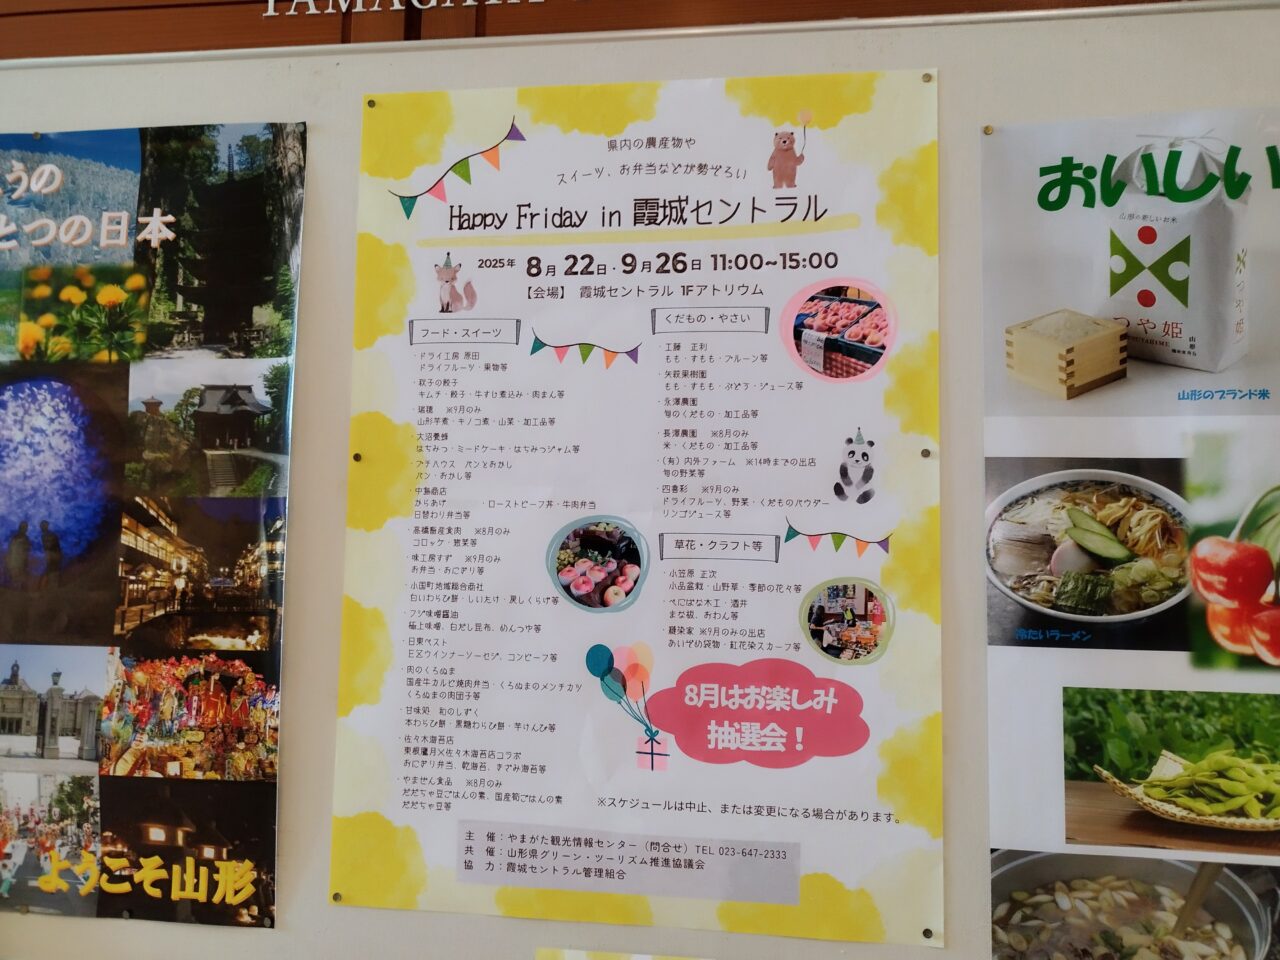 YAMAGATA
うの
とつの日本
ようこそ山形
県内の農産物や
スイーツ、お弁当などが勢ぞろい
Happy Friday in 霞城セントラル
2025年 8月22日・9月26日 11:00~15:00
【会場】 霞城セントラル 1Fアトリウム
フード・スイーツ
・ドライ工房 原田
ドライフルーツ・果物等
・秋子の餃子
キムチ・餃子・牛すじ煮込み・肉まん等
・瑞穂 ※9月のみ
山形芋煮・キノコ煮・山菜・加工品等
・大沼養蜂
はちみつ・ミードケーキ・はちみつジャム等
・プチハウス パンとおかし
パン・おかし等
・中島商店
からあげ ・ローストビーフ丼・牛肉弁当
日替わり弁当等
・高橋畜産食肉 ※8月のみ
コロッケ・惣菜等
・味工房すず ※9月のみ
お弁当・おにぎり等
・小国町地域総合商社
白いわらび餅・しいたけ・戻しくらげ等
・フジ味噌醤油
極上味噌、白だし昆布、めんつゆ等
・日東ベスト
EZウインナーソーセジ、コンビーフ等
・肉のくろぬま
国産牛カルビ焼肉弁当・くろぬまのメンチカツ
くろぬまの肉団子等
・甘味処 和のしずく
本わらび餅・黒糖わらび餅・芋けんぴ等
・佐々木海苔店
東根臈月×佐々木海苔店コラボ
おにぎり弁当、乾海苔、きざみ海苔等
・やません食品 ※8月のみ
だだちゃ豆ごはんの素、国産筍ごはんの素
だだちゃ豆等
くだもの・やさい
・工藤 正利
もも・すもも・プルーン等
・矢萩果樹園
もも・すもも・ぶどう・ジュース等
・永澤農園
旬のくだもの・加工品等
・長澤農園 ※8月のみ
米・くだもの・加工品等
・(有)内外ファーム ※14時までの出店
旬の野菜等
・四喜彩 ※9月のみ
ドライフルーツ、野菜・くだものパウダー
リンゴジュース等
草花・クラフト等
・小笠原 正次
小品盆栽・山野草・季節の花々等
・べにばな木工・酒井
まな板、おわん等
・縫染家 ※9月のみの出店
あいぞめ袋物・紅花染スカーフ等
8月はお楽しみ
抽選会！
※スケジュールは中止、または変更になる場合があります。
主 催：やまがた観光情報センター（問合せ）TEL 023-647-2333
共 催：山形県グリーン・ツーリズム推進協議会
協 力：霞城セントラル管理組合
おいしい
山形の新しいお米
つや姫
TSUYAHIME
山形
つや姫
山形のブランド米
冷たいラーメン